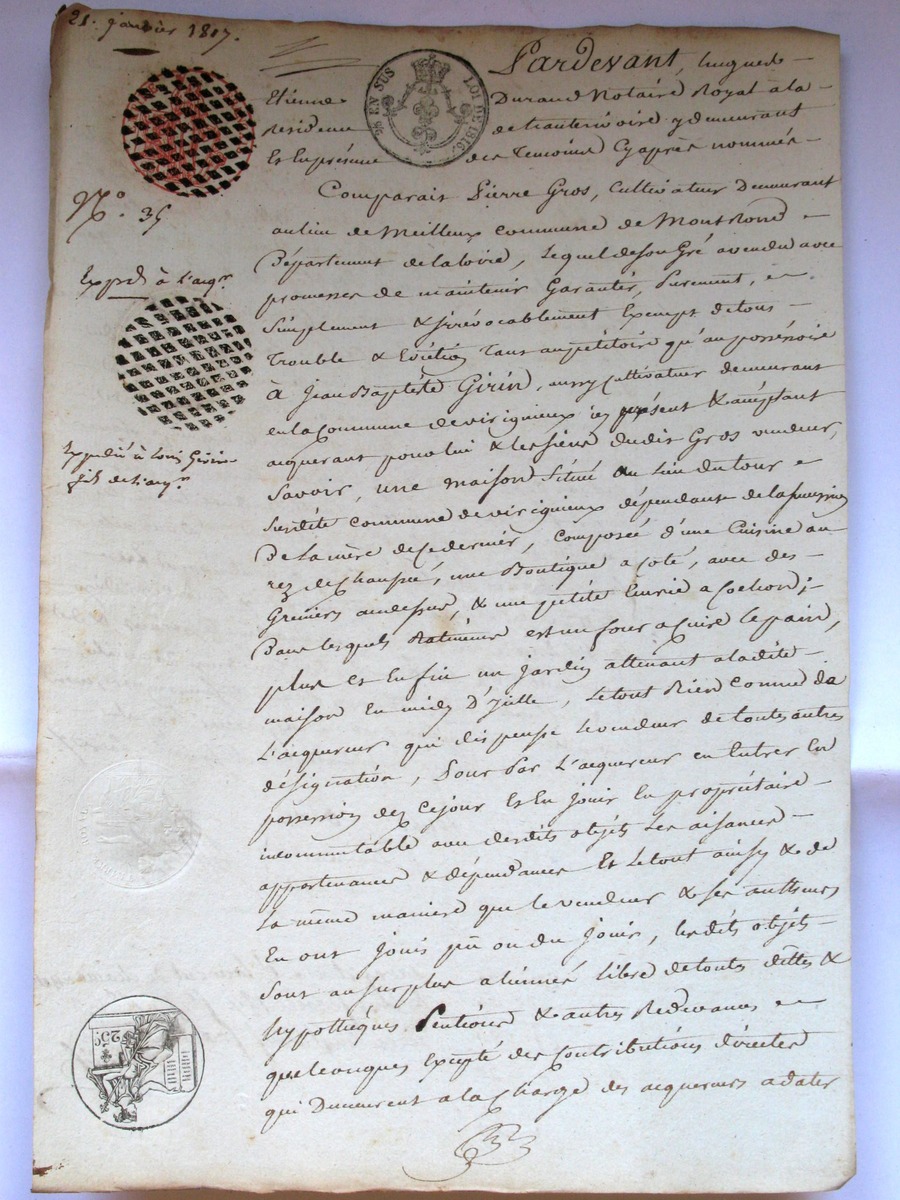 21. janvier 1817.
Pardevant, hugues
Etienne Durand Notaire Royal à la
Residence de chanterivoire y demeurant
Et En présence des Temoins Cy après nommés
Comparait Pierre Gros, Cultivateur Demeurant
au lieu de Meilleux commune de Montrond
Département de la loire, Lequel de son Gré a vendu avec
promesses de maintenir Garantir, Purement, et
Simplement & irrévocablement Exempt de tous
Trouble & Eviction Tant au pétitoire qu'au posséssoire
à Jean Baptiste Girin, aussy Cultivateur demeurant
en la Commune de virignieux icy présent & acceptant
acquerant pour lui & les siens dudit Gros vendeur,
Savoir, une maison Située au Lieu du tour
Susdite commune de virignieux dépendante de la succession
De la mère de ce dernier, Composée d'une Cuisine au
rez de chaussée, une Boutique a coté, avec des
Greniers au dessus, & une petite Ecurie a Cochon;
Dans lesquels Batiments est un four a cuire le pain,
plus et Enfin un jardin attenant a la dite
maison En midy D'Icelle, Le tout Bien Connu de
L'acquereur qui dispense Le vendeur de toutes autres
désignation, Pour Par L'acquereur en Entrer En
possession dez Ce jour Et En Jouir En propriétaire
incommutable avec desdits objets Les aisances
appartenances & dépendances Et Le tout ainsy & de
La même maniere que Le vendeur & ses autheurs
En ont Jouis pû ou du Jouir, lesdits objets
Sont au surplus aliennés libre de touts dettes &
hypothèques Pentions & autres Redevances
quelconques Excepté des Contributions directes
qui Demeurent a la Charge des acquereurs a dater
N.º 35
Expd. à l'aqr.
Expedié à Louis Girin
fils de l'aqr.
98 EN SUS
LOI DE 1816.
25c